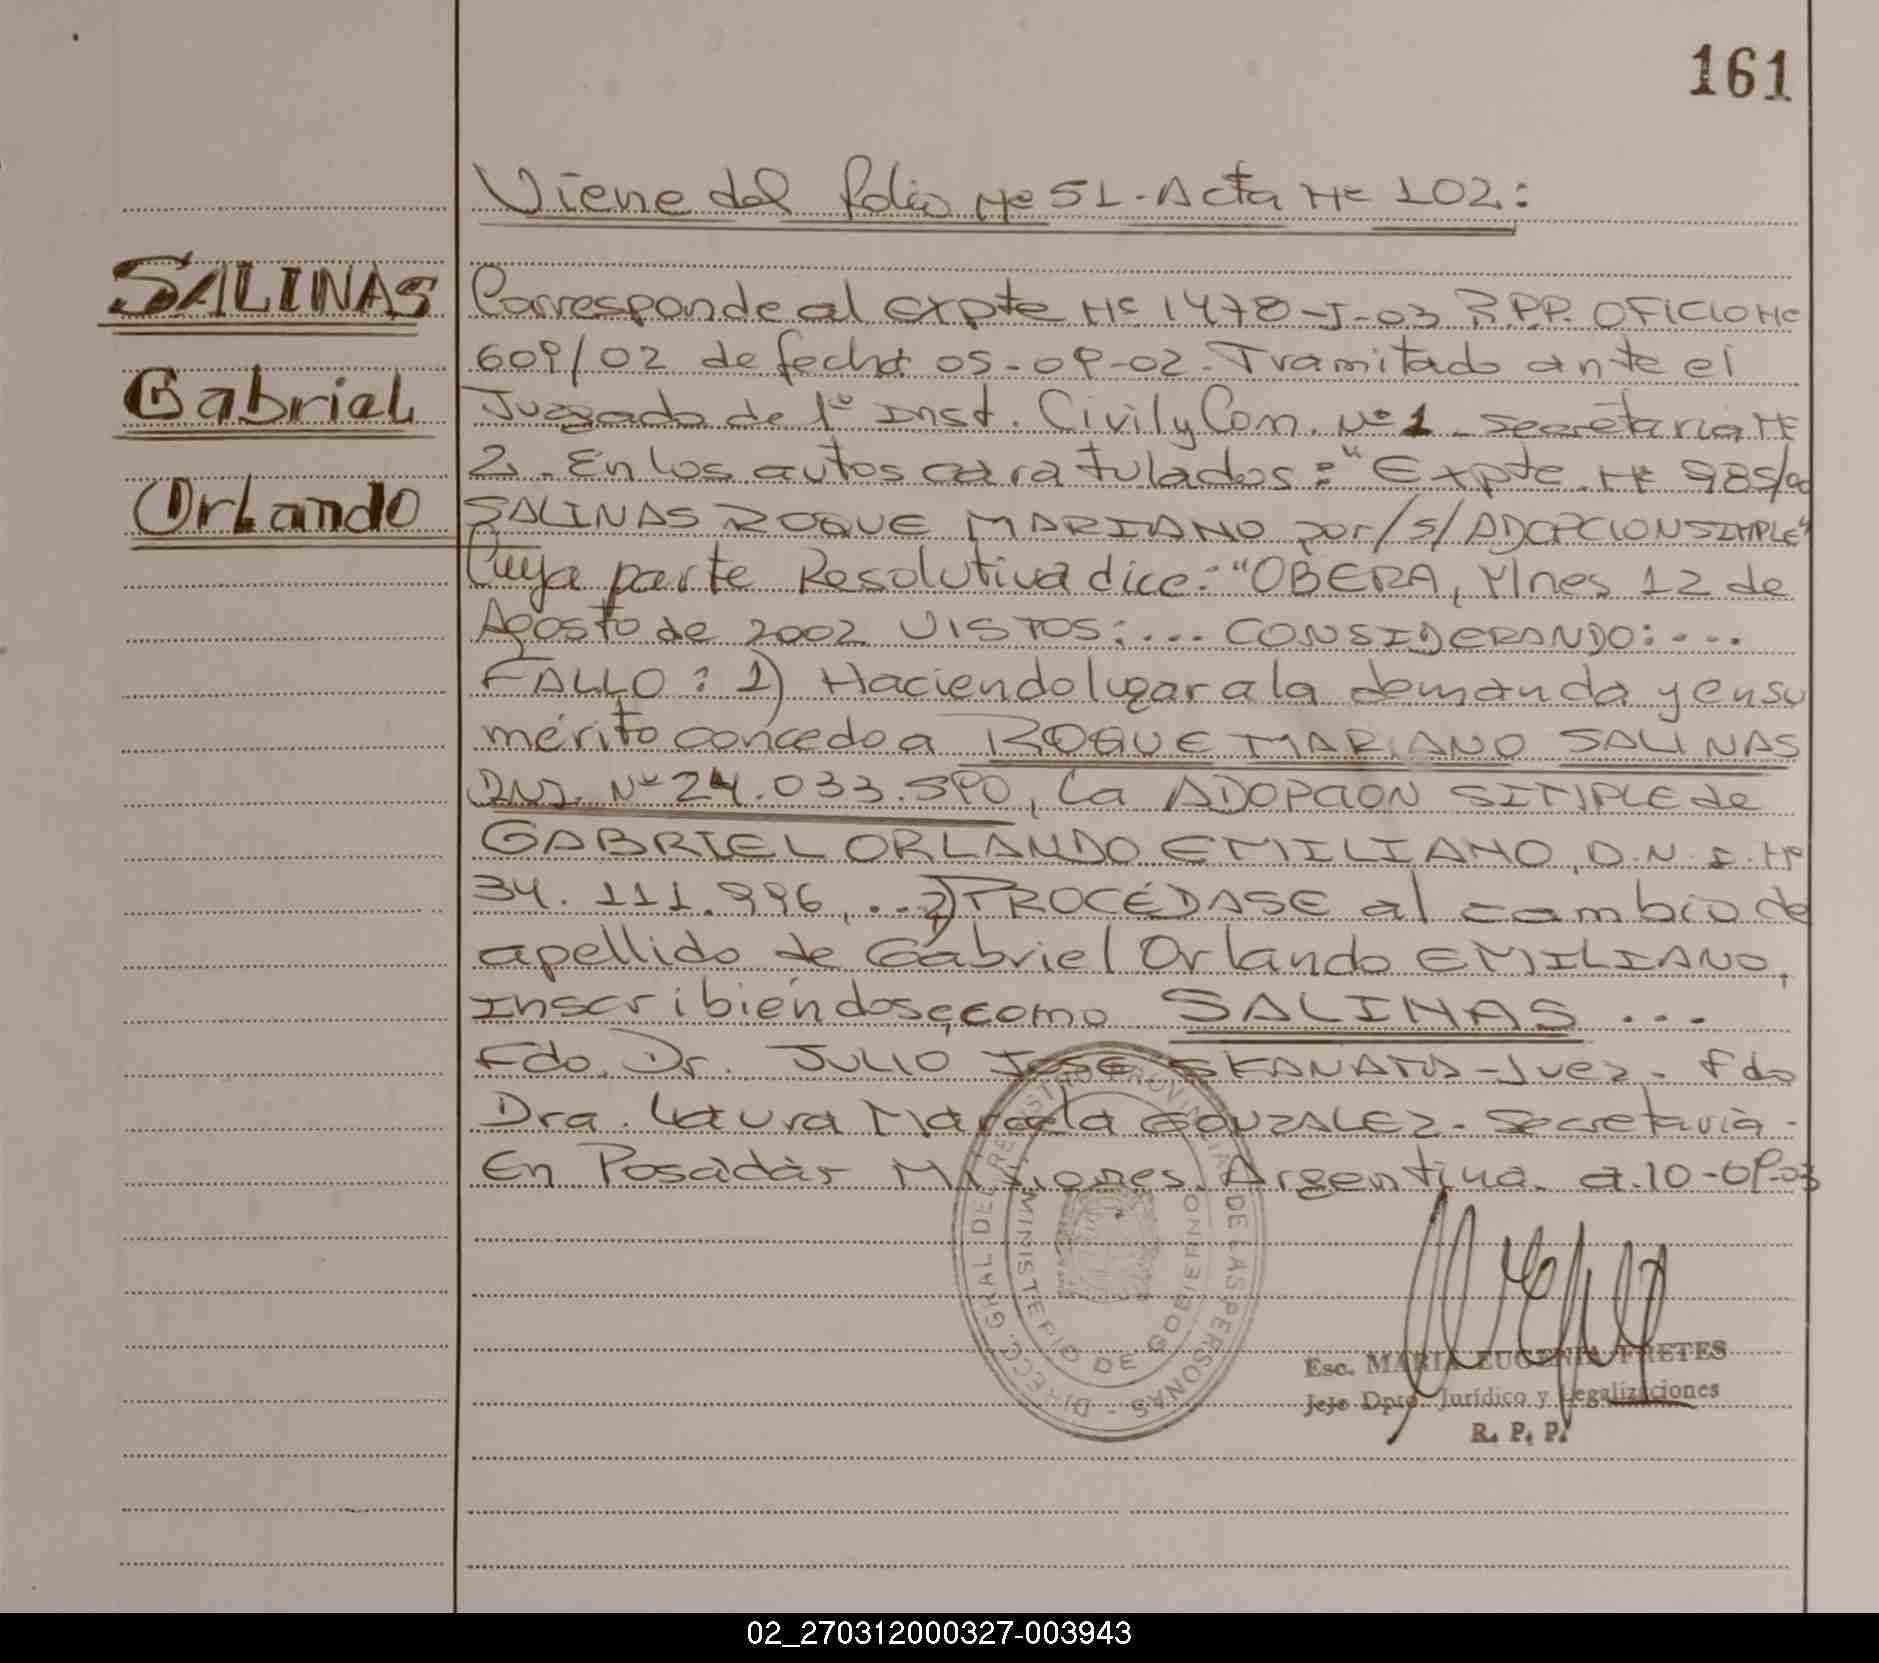 161
Viene del folio Nº 51-Acta Nº 102:
SALINAS
Gabriel
Orlando
Corresponde al expte Nº 1478-J-03 R.P.P. OFICIO Nº
609/02 de fecha 05-09-02. Tramitado ante el
Juzgado de 1º Inst. Civil y Com. Nº 1. Secretaria Nº
2. En los autos caratulados: "Expte. Nº 985/00
SALINAS ROQUE MARIANO por/s/ADOPCION SIMPLE"
Cuya parte Resolutiva dice: "OBERA, Mnes 12 de
Agosto de 2002 VISTOS:... CONSIDERANDO:....
FALLO: 1) Haciendo lugar a la demanda y en su
mérito concedo a ROQUE MARIANO SALINAS
DNI. Nº 24.033.590, la ADOPCION SIMPLE de
GABRIEL ORLANDO EMILIANO, D.N.I. Nº
34.111.996,...2) PROCÉDASE al cambio de
apellido de Gabriel Orlando EMILIANO,
Inscribiéndose como SALINAS ...
Fdo. Dr. JULIO JOSE SKANATA-Juez. Fdo
Dra. Laura Marcela GONZALEZ. Secretaria-
En Posadas Misiones, Argentina. a.10-09-03
DIRECC. GRAL DEL REGISTRO PROVINCIAL DE LAS PERSONAS -
MINISTERIO DE GOBIERNO
Esc. MARIA EUGENIA FRETES
Jefe Dpto. Jurídico y Legalizaciones
R. P. P.
02_270312000327-003943